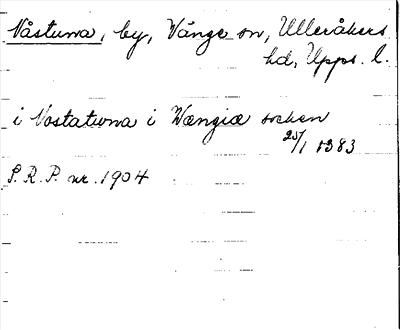 Våstuna, by, Vänge sn, Ulleråkers
hd, Upps. l.
i Vostatuna i Wængiæ socken
25/1 1383
S.R.P. nr. 1904